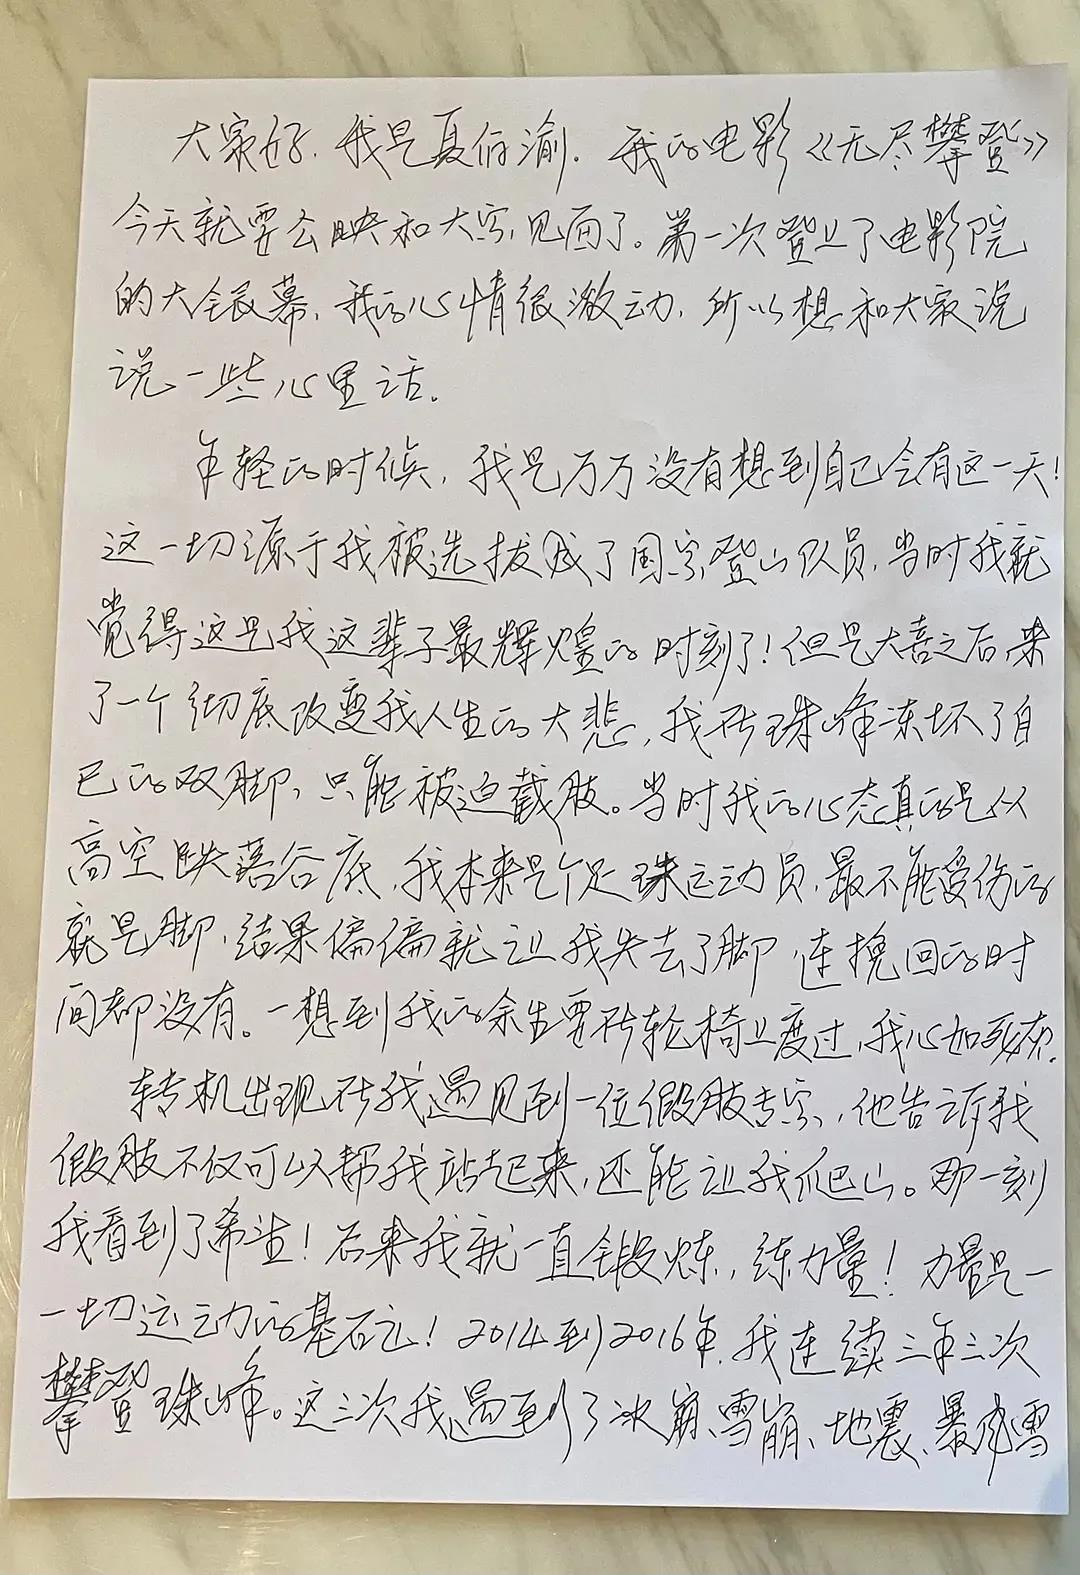 大家好，我是夏伯渝。我的电影《无尽攀登》
今天就要公映和大家见面了。第一次登上了电影院
的大银幕，我的心情很激动，所以想和大家说
说一些心里话。
年轻的时候，我是万万没有想到自己会有这一天！
这一切源于我被选拔成了国家登山队员，当时我就
觉得这是我这辈子最辉煌的时刻了！但是大喜之后，来
了一个彻底改变我人生的大悲，我在珠峰冻坏了自
己的双脚，只能被迫截肢。当时我的心态真的是从
高空跌落谷底，我本来是个足球运动员，最不能受伤的
就是脚，结果偏偏就让我失去了脚，连挽回的时
间都没有。一想到我的余生要在轮椅上度过，我心如死灰。
转机出现在我遇见到一位假肢专家，他告诉我
假肢不仅可以帮我站起来，还能让我爬山。那一刻
我看到了希望！后来我就一直锻炼，练力量！力量是一
一切运动的基石！2014到2016年，我连续三年三次
攀登珠峰。这三次我遇到了冰崩、雪崩、地震、暴风雪